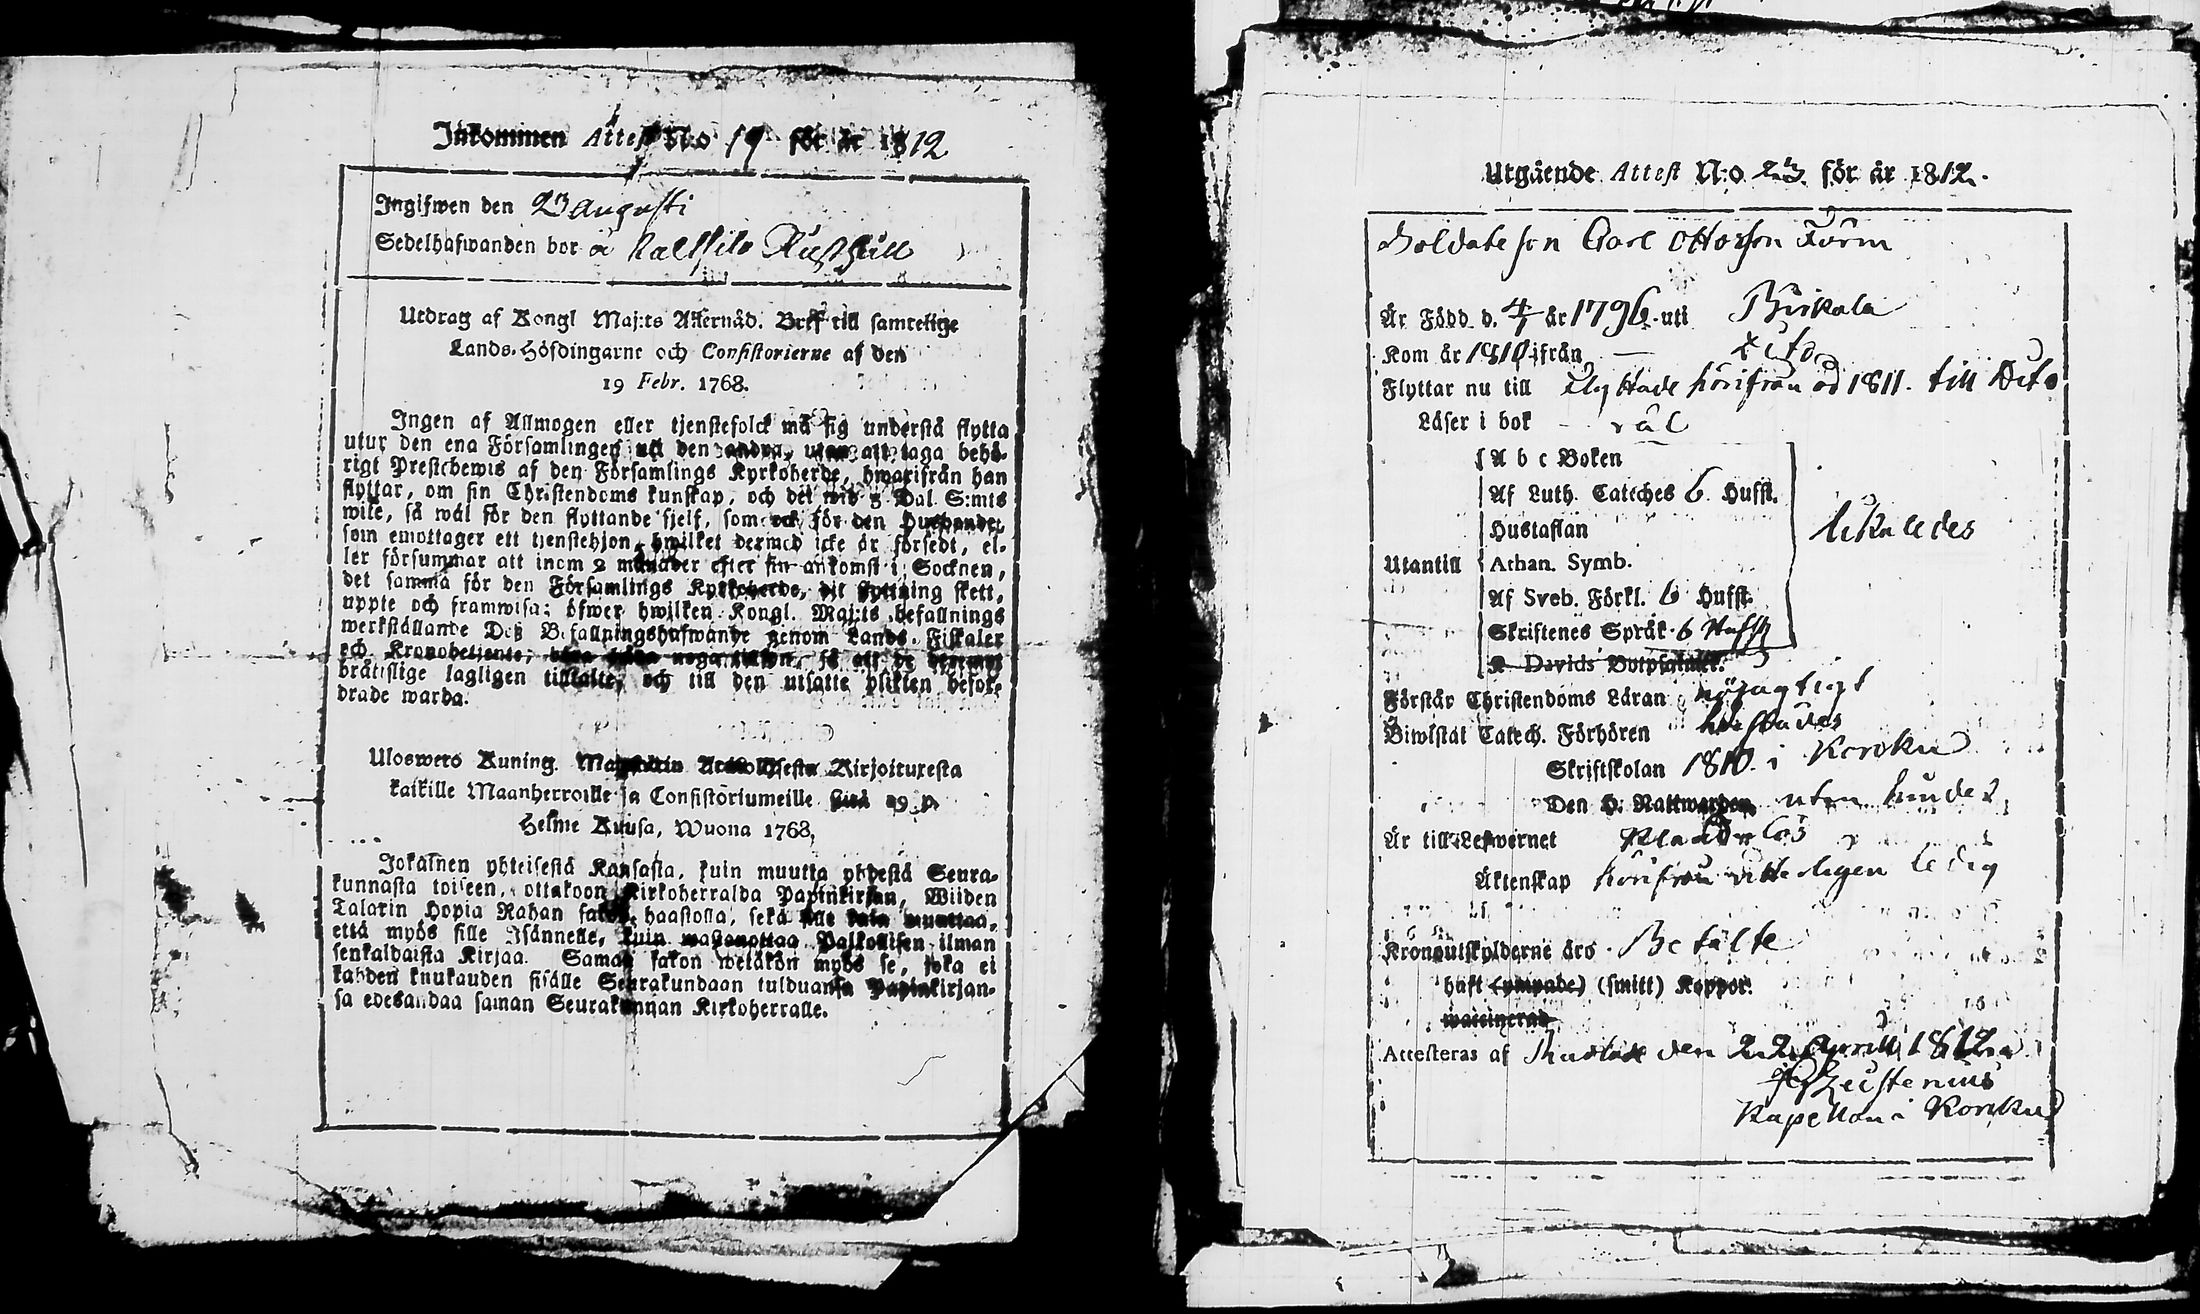 Inkommen Attest No 19 för år 1812
Ingifwen den 23 augusti
Sedelhafwanden bor å Rusthåll
Utdrag af Kongl Maj:ts Allernåd. Bref till samtelige
Lands-Höfdingarne och Consistorierne af den
19 Febr. 1768.
Ingen af Allmogen eller tjenstefolck må sig understå flytta
utur den ena Församlingen uti den andra, utan att taga behö-
rigt Prestebewis af den Församlings Kyrkoherde, hwarifrån han
flyttar, om sin Christendoms kunskap, och det wid 5 Dal. S:mts
wite, så wäl för den flyttande sjelf, som ock för den Husbonde,
som emottager ett tjenstehjon, hwilket dermed icke är försedt, el-
ler försummar att inom 2 månader efter sin ankomst i Socknen,
det samma för den Församlings Kyrkoherde, dit flyttning skett,
uppte och framwisa; öfwer hwilken Kongl. Maj:ts befallnings
werkställande Deß Befallningshafwande genom Lands-Fiskaler
och Kronobetjente, noga så att de
bråtislige lagligen tilltalte, och till den utsatte plikten befor-
drade warda.
Uloswero Kuning. Majestätin Armollisesta Kirjoituxesta
kaikille Maanherroille ja Consistoriumeille siitä 19 p.
Helme Kuusa, Wuona 1768,
Jokainen yhteisestä Kansasta, kuin muutta yhdestä Seura-
kunnasta toiseen, ottakoon Kirkoherralda Papinkirjan, Wiiden
Talarin Hopia Rahan sakon haastolla, sekä sille kuin muuttaa,
että myös sille Isännelle, kuin wastanottaa Palkollisen ilman
senkaldaista Kirjaa. Saman sakon wetäkön myös se, joka ei
kahden knukauden sisälle Seurakundaan tulduansa Papinkirjan-
sa edesandaa saman Seurakunnan Kirkoherralle.
Utgående Attest N:o 23 för år 1812.
Soldate son Carl Ottosson Form
Är Född d. 4/1 år 1796 uti Birkala
Kom år 1810 ifrån — dito
Flyttar nu till flyttade härifrån åd 1811. till Dito
Läser i bok väl
A b c Boken
Af Luth. Cateches 6 Hufst.
Hustaflan
likaledes
Utantill Athan. Symb.
Af Sveb. Förkl. 6 Hufst.
Skriftenes Språk 6 Hufst
K Davids Botpsalmer.
Förstår Christendoms Läran nöjagtigt
Biwistat Catech. Förhören
Skriftskolan 1810 i Koroku
Den H. Nattwarden utan hinder,
Är till Lefwernet klanderlös
Äktenskap härifrån witterligen ledig
Kronoutskylderne äro Betalte
haft (ympade) (smitt) Koppor.
waccinerad
Attesteras af den 22 Aprill 1812
Kapellan i Koroku